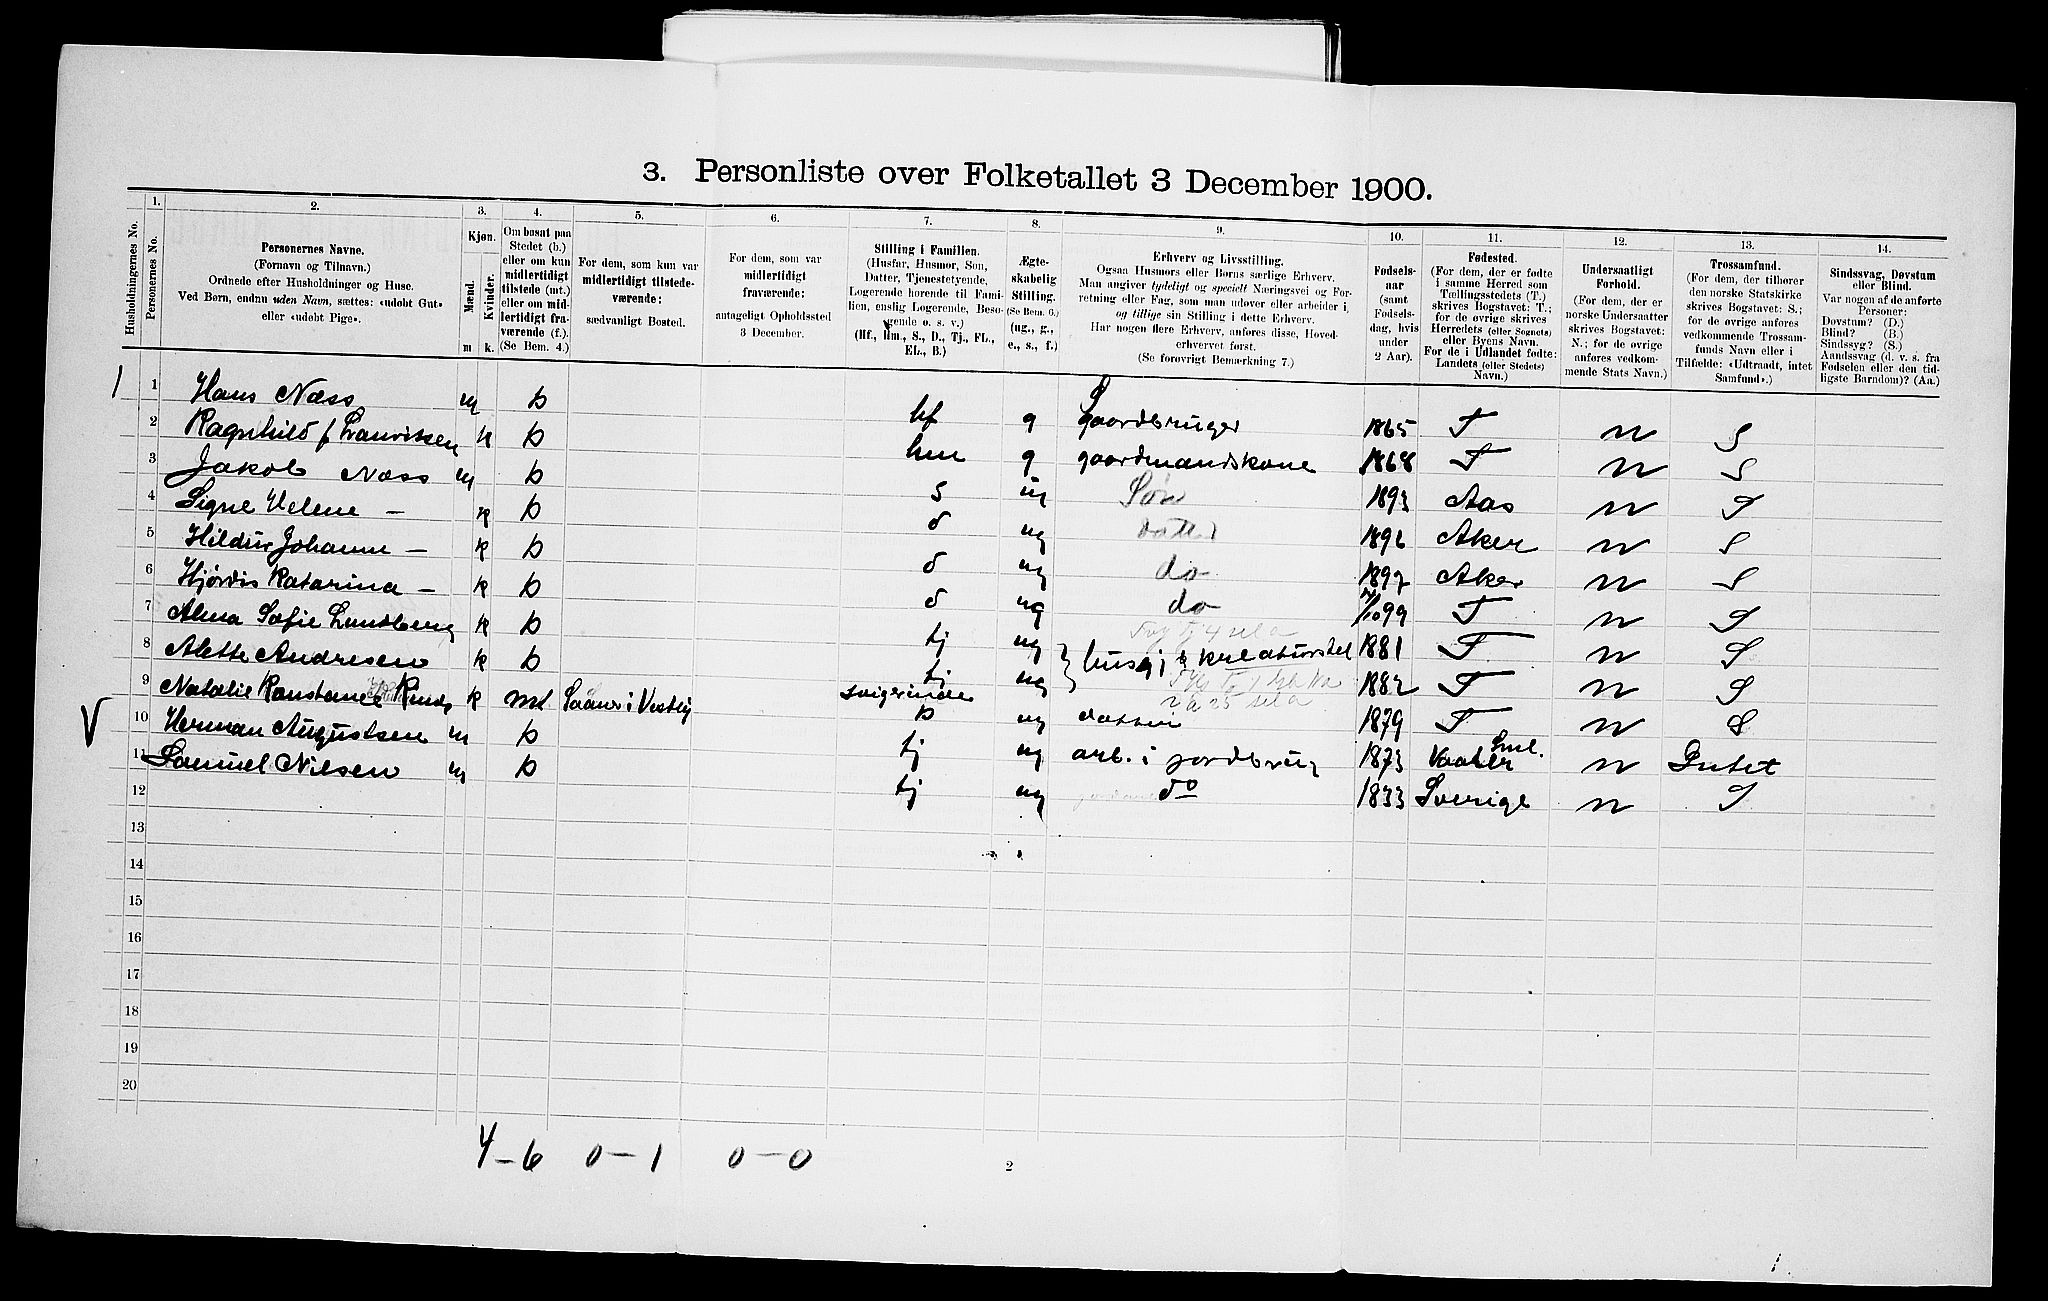 3. Personliste over Folketallet 3 December 1900.
Husholdningernes No.
1. Personernes No.
2. Personernes Navne.
(Fornavn og Tilnavn.)
Ordnede efter Husholdninger og Huse.
Ved Børn, endnu uden Navn, sættes: «udøbt Gut» eller «udøbt Pige».
3. Kjøn.
Mænd. m
Kvinder. k.
4. Om bosat paa Stedet (b.) eller om kun midlertidigt tilstede (mt.) eller om midlertidigt fraværende (f.). (Se Bem. 4.)
5. For dem, som kun var midlertidigt tilstedeværende:
sædvanligt Bosted.
6. For dem, som var midlertidigt fraværende:
antageligt Opholdssted 3 December.
7. Stilling i Familien.
(Husfar, Husmor, Søn, Datter, Tjenestetyende, Logerende hørende til Familien, enslig Logerende, Besøgende o. s. v.)
(Hf., Hm., S., D., Tj., FL., EL., B.)
8. Ægteskabelig Stilling.
(Se Bem. 6.)
(ug., g., e., s., f.)
9. Erhverv og Livsstilling.
Ogsaa Husmors eller Børns særlige Erhverv. Man angiver tydeligt og specielt Næringsvei og Forretning eller Fag, som man udøver eller arbeider i, og tillige sin Stilling i dette Erhverv.
Har nogen flere Erhverv, anføres disse, Hovederhvervet først.
(Se forøvrigt Bemærkning 7.)
10. Fødselsaar (samt Fødselsdag, hvis under 2 Aar).
11. Fødested.
(For dem, der er fødte i samme Herred som Tællingsstedets (T.) skrives Bogstavet: T.; for de øvrige skrives Herredets (eller Sognets) eller Byens Navn. For de i Udlandet fødte: Landets (eller Stedets) Navn.)
12. Undersaatligt Forhold.
(For dem, der er norske Undersaatter skrives Bogstavet: N.; for de øvrige anføres vedkommende Stats Navn.)
13. Trossamfund.
(For dem, der tilhører den norske Statskirke skrives Bogstavet: S.; for de øvrige anføres vedkommende Trossamfunds Navn eller i Tilfælde: «Udtraadt, intet Samfund».)
14. Sindssvag, Døvstum eller Blind.
Var nogen af de anførte Personer:
Døvstum? (D.)
Blind? (B.)
Sindssyg? (S.)
Aandssvag (d. v. s. fra Fødselen eller den tidligste Barndom)? (Aa.)
1 1 Hans Næss m b hf g gaardbruger 1865 T n S
2 Ragnhild f Lauritsen k b hm g gaardmandskone 1868 T n S
3 Jakob Næss m b s ug Søn 1893 Aas n S
4 Signe Helene — k b d ug datter 1896 Aker n S
5 Hildur Johanne — k b d ug do 1897 Aker n S
6 Hjørdis Katarina — k b d ug do 99 T n S
7 Alma Sofie Lundberg k b tj ug } husgj & kreaturstel 1881 T n S
8 Alette Andresen k b tj ug 1882 T n S
9 Natalie Konstance k mt Saaner i Vestby svigerinde b ug datter 1879 T n S
V 10 Herman Augustsen m b tj ug arb. i jordbrug 1873 Vaaler Sml. n Intet
11 Samuel Nilsen m b tj ug do 1833 Sverige n S
12
13
14
15
16
17
18
19
20
4–6 0–1 0–0
2